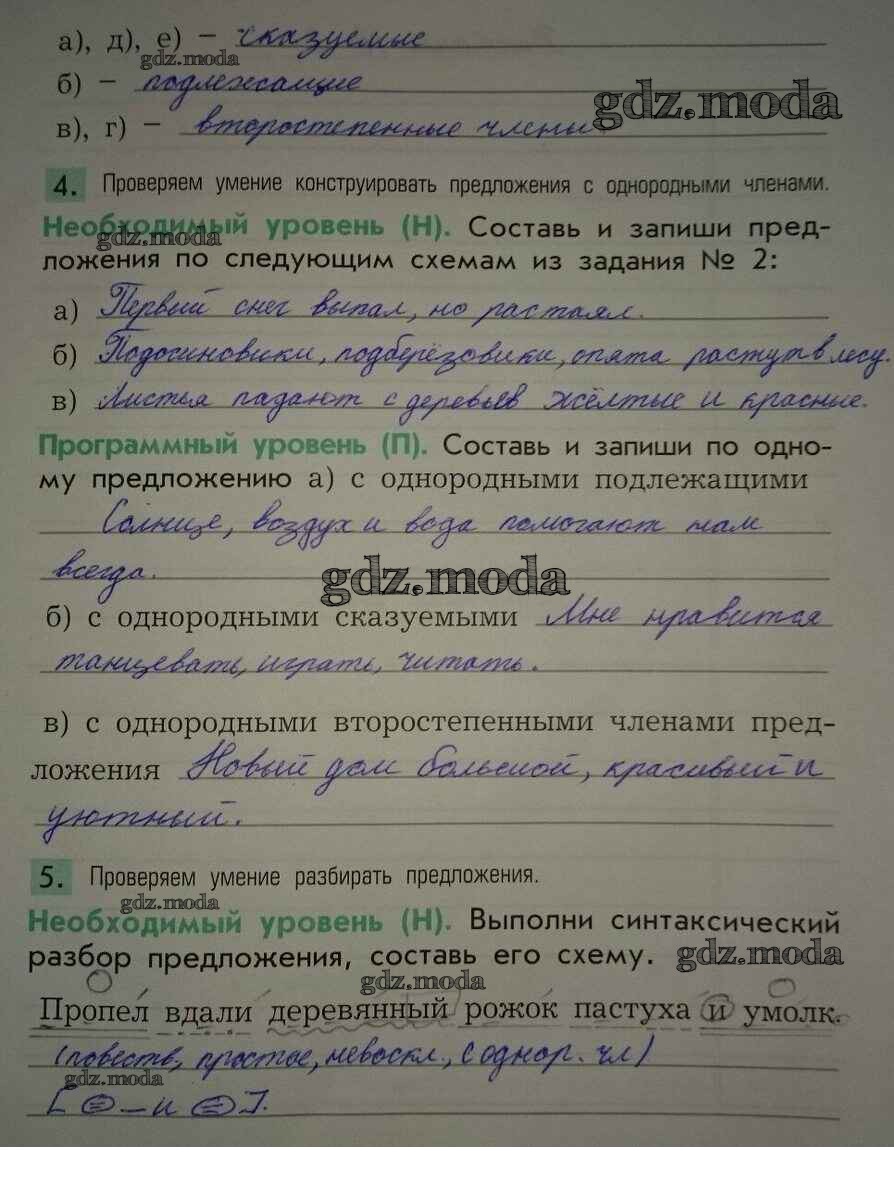 а), д), е) – сказуемые
gdz.moda
б) – подлежащие
gdz.moda
в), г) – второстепенные члены
4. Проверяем умение конструировать предложения с однородными членами.
Необходимый уровень (Н). Составь и запиши пред-
gdz.moda
ложения по следующим схемам из задания № 2:
а) Первый снег выпал, но растаял.
б) Подосиновики, подберёзовики, опята растут в лесу.
в) Листья падают с деревьев жёлтые и красные.
Программный уровень (П). Составь и запиши по одно-
му предложению а) с однородными подлежащими
Солнце, воздух и вода помогают нам
всегда.
gdz.moda
б) с однородными сказуемыми Мне нравится
танцевать, играть, читать.
в) с однородными второстепенными членами пред-
ложения Новый дом большой, красивый и
уютный.
5. Проверяем умение разбирать предложения.
gdz.moda
Необходимый уровень (Н). Выполни синтаксический
разбор предложения, составь его схему.
gdz.moda
gdz.moda
Пропел вдали деревянный рожок пастуха и умолк.
(повеств, простое, невоскл., с однор. чл)
gdz.moda
[ – и ].